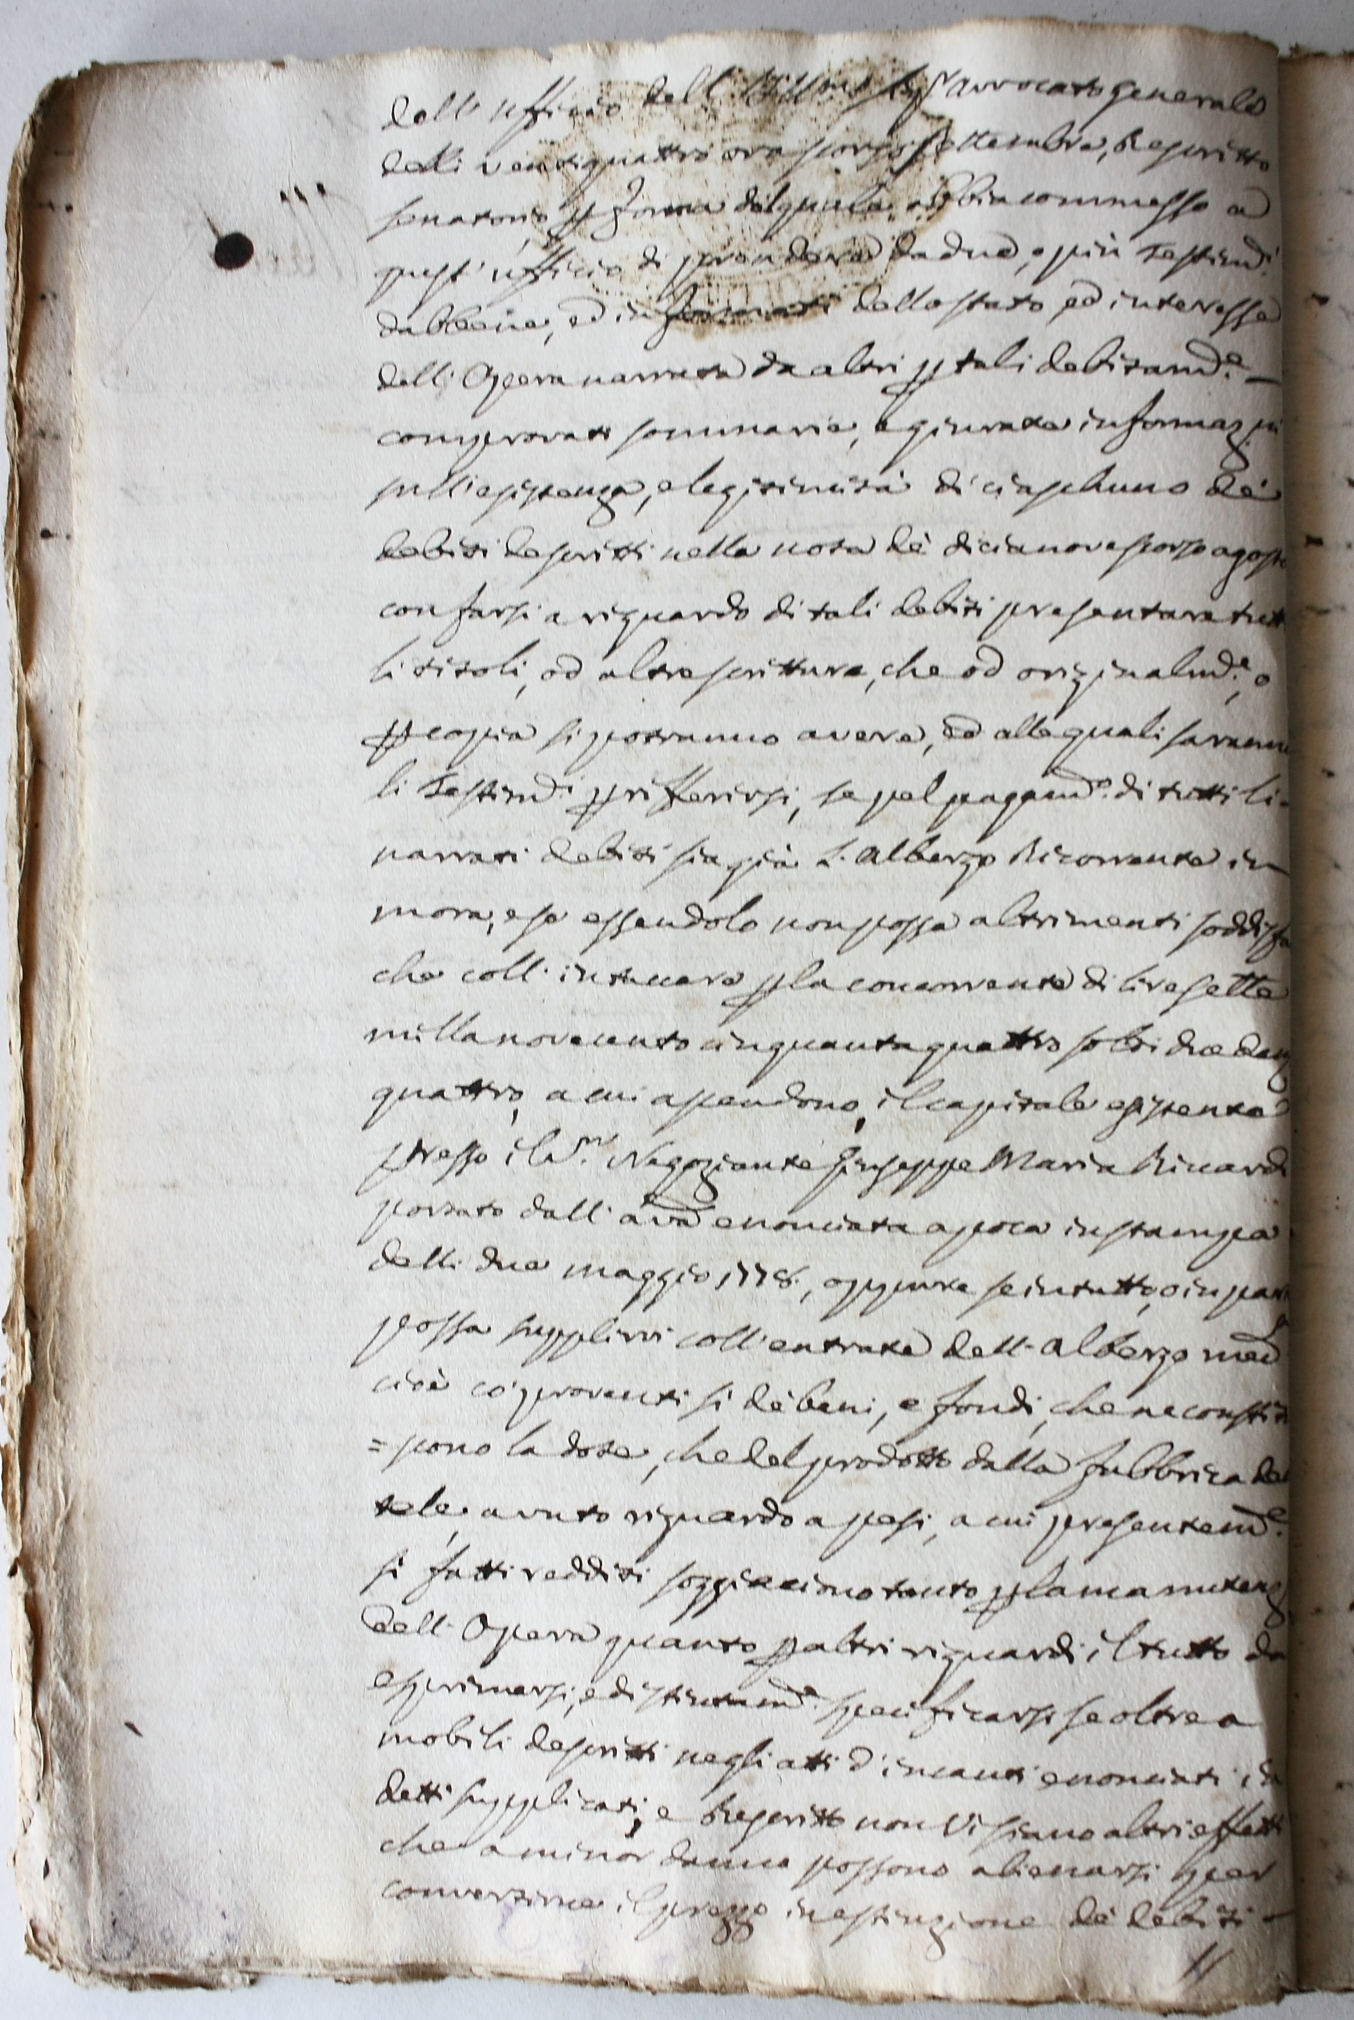 dell'ufficio dell' Ill.mo Sig.r avvocato generale
delli ventiquattro ora scorso settembre, Rescritto
senatorio p forma del quale abbia commesso a
quest'ufficio di prendere da due, o più Testimd.i
dabbene, ed informati dello stato ed interesse
dell'Opera narrata da altri p tali debitamd.e
comprovati sommarie, e giurate informaz.ni
sull'esistenza, e legitimità di ciaschuno de'
debiti descritti nella nota de' dicianove scorso agosto
con farsi a riguardo di tali debiti presentare tutt
li titoli, od altre scritture, che od originalmd.e, o
p copia si potranno avere, ed alle quali sarann
li Testimd.i p rifferirsi, se pel pagamd.o di tutti li
narrati debiti sia già L'albergo Ricorrente in
mora, e se essendolo non possa altrimenti soddisfa
che coll'intaccare p la concorrente di lire sette
milla novecento cinquanta quattro soldi due den
quattro, a cui ascendono, il capitale esistente
presso il S.r Negoziante Giuseppe Maria Riccardi
portato dall'avd enonciata apoca in stampa
delli due maggio 1778, oppure se in tutto, o in part
possa supplirvi coll'entrate dell'albergo med
cioè co' proventi sì de' beni, e fondi, che ne constit
= scono la dote, che del prodotto dalla fabbrica del
tele avuto riguardo a pesi, a cui presentemd.e
sì fatti redditi soggiacciono tanto p la manutenz
dell'Opera quanto p altri riguardi il tutto da
esprimersi, e distintamd.e specificarsi se oltre a
mobili descritti negli atti d'incanti enonciati in
detti supplicati, e Rescritto non vi siano altri effetti
che a minor danno possono alienarsi per
convertirne il prezzo in estinzione de' debiti